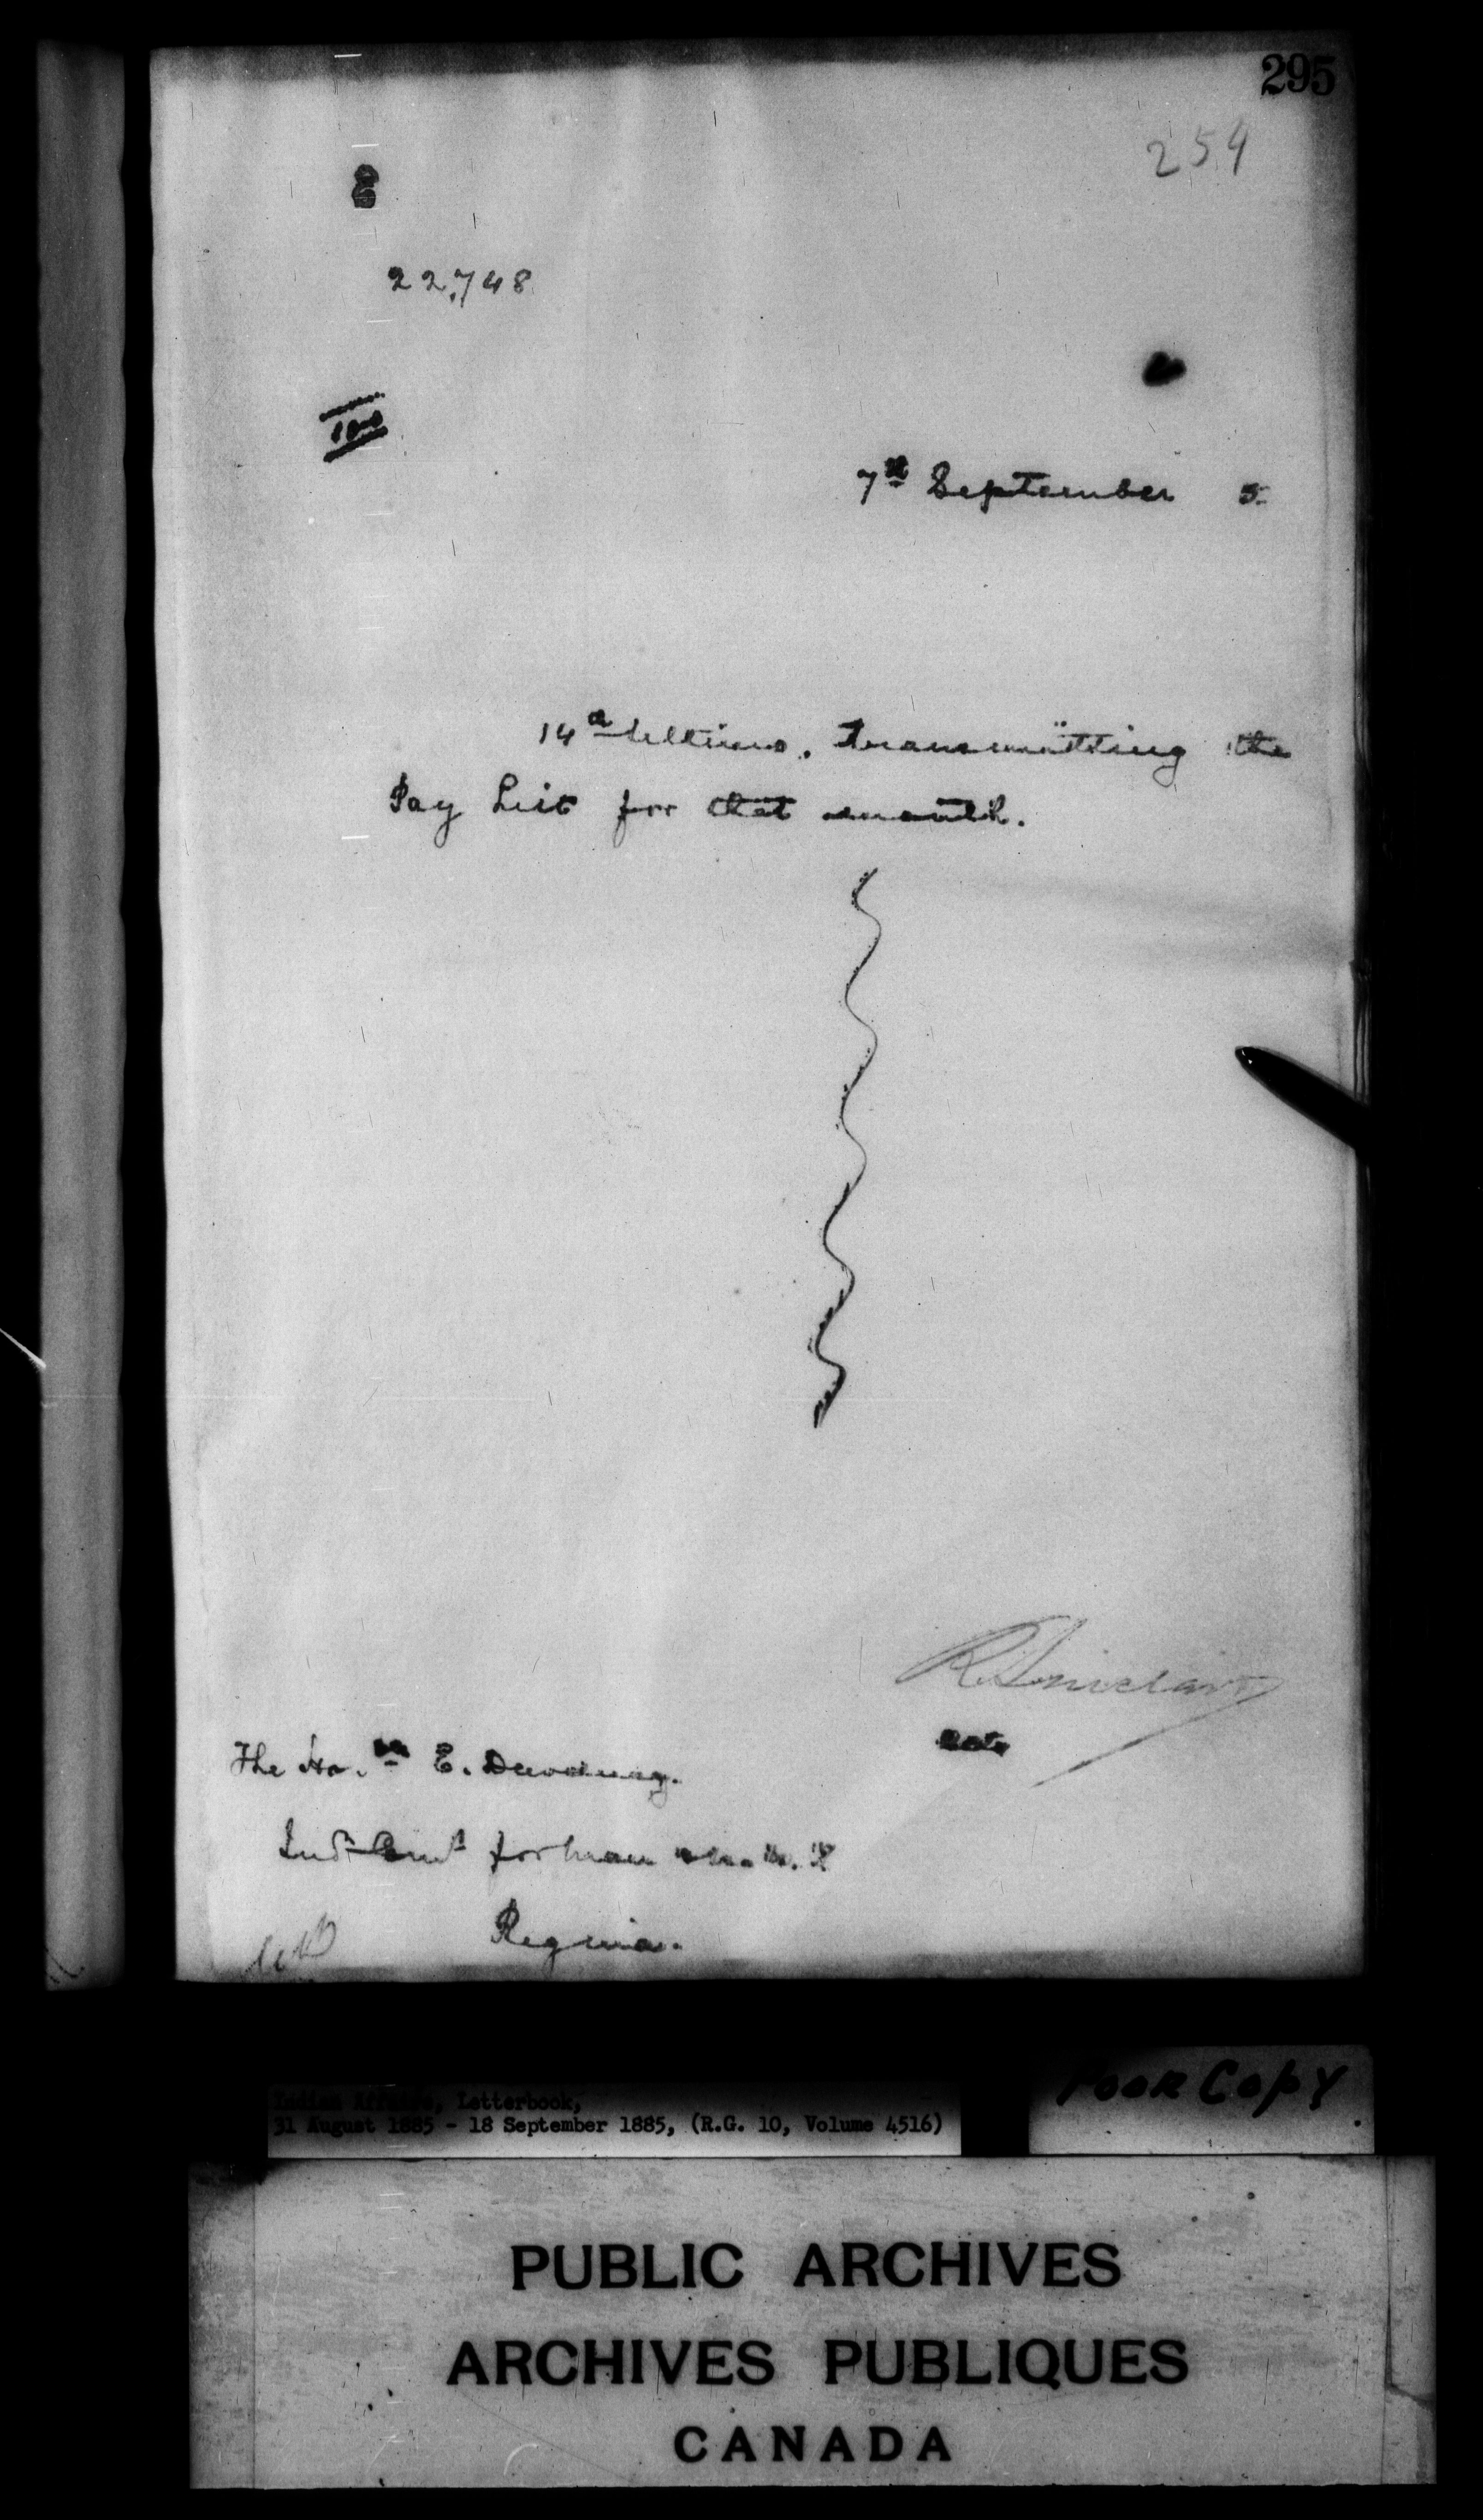 295
254
22,748
7th September 5
14th Ultimo. Transmitting the
Pay List for that month.
R. Sinclair
The Hon. E. Dewdney.
Regina.
Indian Affairs, Letterbook,
31 August 1885 - 18 September 1885, (R.G. 10, Volume 4516)
Poor Copy
PUBLIC ARCHIVES
ARCHIVES PUBLIQUES
CANADA